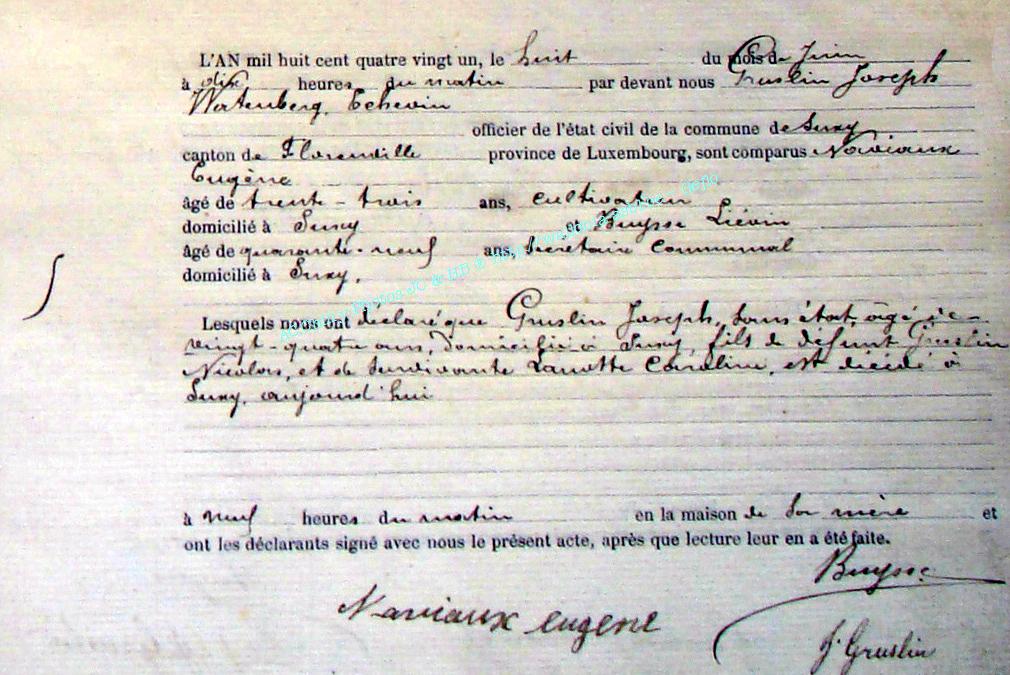 L'AN mil huit cent quatre vingt un, le huit du mois de Juin
à dix heures du matin par devant nous Gruslin Joseph
Watenberg, Echevin
officier de l'état civil de la commune de Suxy
canton de Florenville province de Luxembourg, sont comparus Naviaux
Eugène
âgé de trente-trois ans, cultivateur
domicilié à Suxy et Buysse Liévin
âgé de quarante-neuf ans, Secrétaire Communal
domicilié à Suxy,
Lesquels nous ont déclaré que Gruslin Joseph, sans état, âgé de
vingt-quatre ans, domicilié à Suxy, fils de défunt Gruslin
Nicolas, et de survivante Lanotte Caroline, est décédé à
Suxy, aujourd'hui
à neuf heures du matin en la maison de sa mère et
ont les déclarants signé avec nous le présent acte, après que lecture leur en a été faite.
Buysse
Naviaux eugene
J. Gruslin